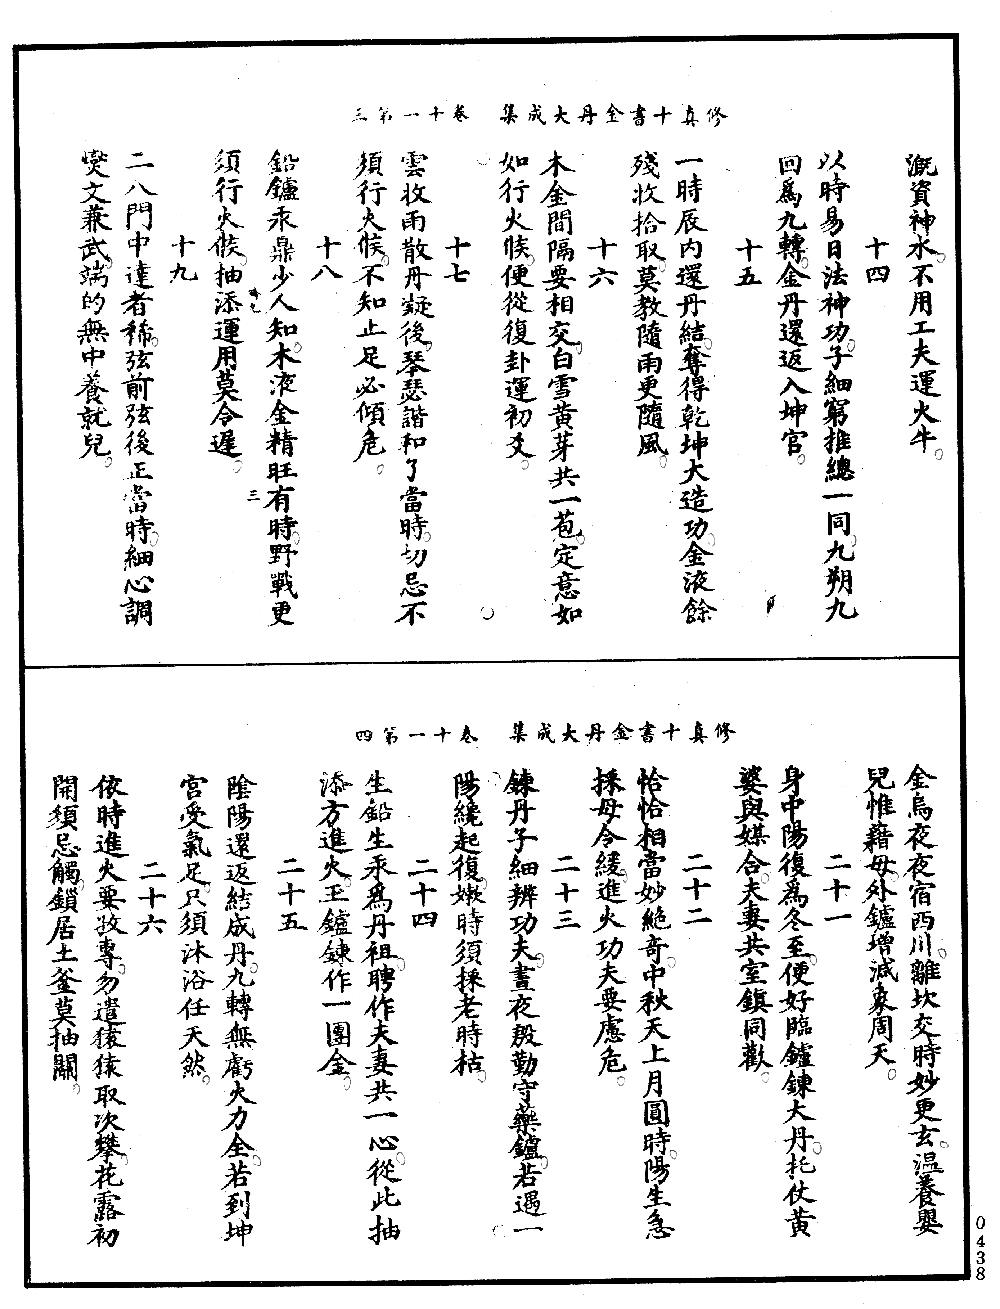 修真十書金丹大成集　卷十一第三
溉資神水不用工夫運火牛
十四
以時易日法神功子細窮推總一同九朔九
回爲九轉金丹還返入坤宫
十五
一時辰内還丹結奪得乾坤大造功金液餘
殘收拾取莫教隨雨更隨風
十六
木金間隔要相交白雪黄芽共一苞定意如
如行火候便從復卦運初爻
十七
雲收雨散丹凝後琴瑟諧和了當時切忌不
須行火候不知止足必傾危
十八
鉛鑪汞鼎少人知木液金精旺有時野戰更
須行火候抽添運用莫令遲
三
十九
二八門中達者稀弦前弦後正當時細心調
燮文兼武端的無中養就兒
修真十書金丹大成集　卷十一第四
金烏夜夜宿西川離坎交時妙更玄温養嬰
兒惟藉母外鑪增減象周天
二十一
身中陽復爲冬至便好臨鑪鍊大丹托仗黄
婆與媒合夫妻共室鎮同歡
二十二
恰恰相當妙絶奇中秋天上月圓時陽生急
採毋令緩進火功夫要慮危
二十三
鍊丹子細辨功夫晝夜殷勤守藥鑪若遇一
陽纔起復嫩時須採老時枯
二十四
生鉛生汞爲丹祖聘作夫妻共一心從此抽
添方進火玉鑪鍊作一團金
二十五
陰陽還返結成丹九轉無虧火力全若到坤
宫受氣足只須沐浴任天然
二十六
依時進火要孜專勿遣猿猿取次攀花露初
開須忌觸鎖居土釜莫抽關
0438